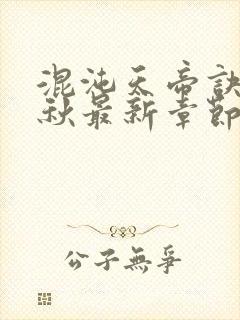 混沌天帝訣
秋最新章節
公子無爭